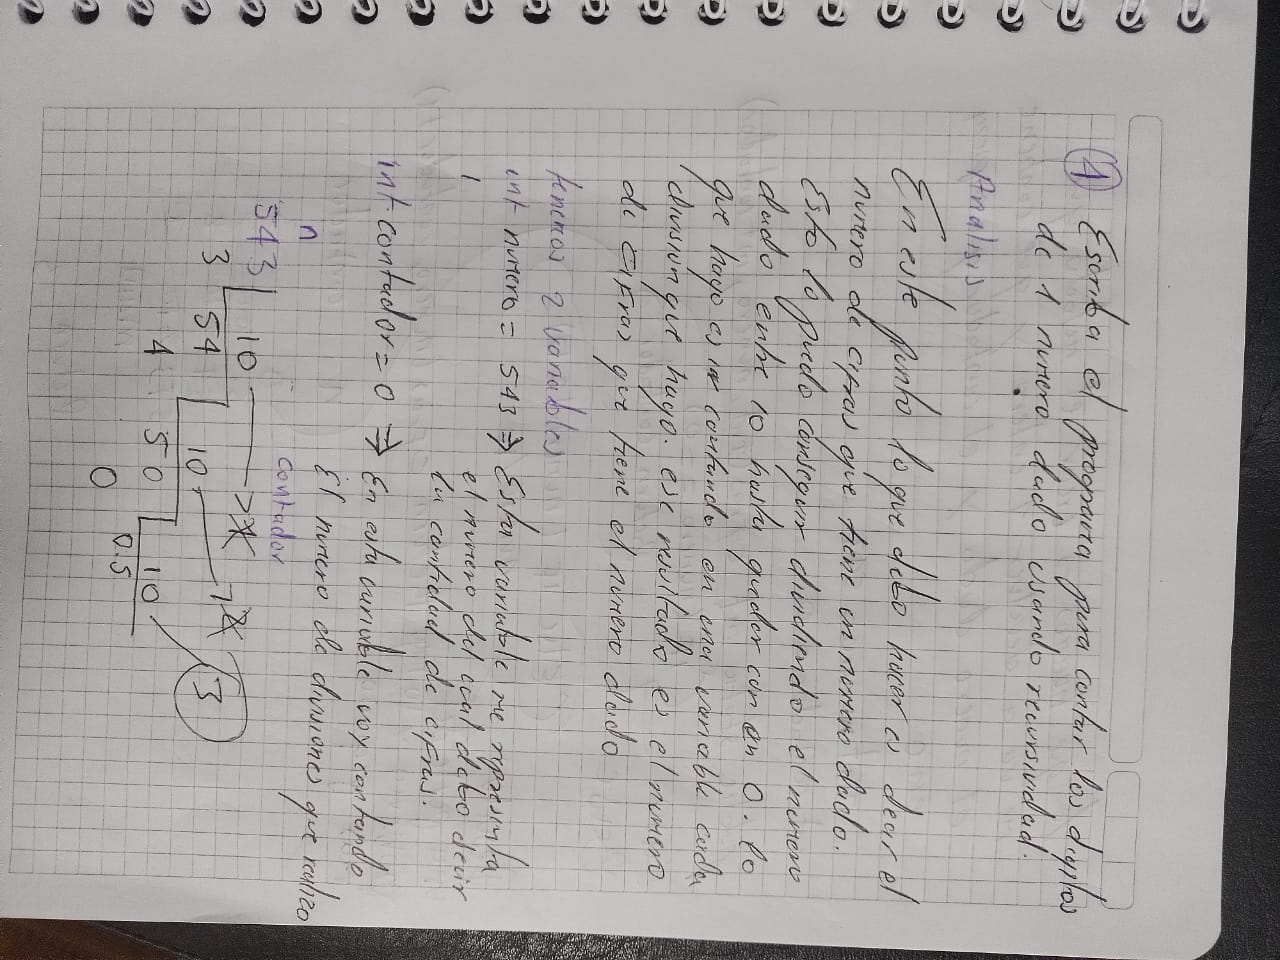 1 Escriba el programa para contar los digitos
de 1 numero dado usando recursividad.
Analisis
En este punto lo que debo hacer es decir el
numero de cifras que tiene un numero dado.
Esto lo puedo conseguir dividiendo el numero
dado entre 10 hasta quedar con en 0. lo
que hago es contando en una variable cada
division que hago. ese resultado es el numero
de cifras que tiene el numero dado
tenemos 2 variables
int numero = 543 ⇒ Esta variable me representa
el numero del cual debo decir
la cantidad de cifras.
int contador = 0 ⇒ En esta variable voy contando
El numero de divisiones que realizo
n
contador
543 10
3 54 10
4 50 10
0 0.5
3